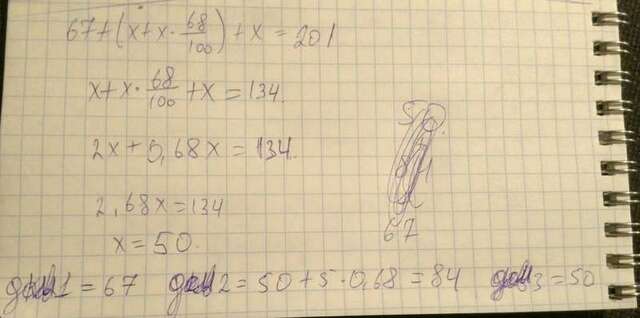 67+(x+x·68/100)+x=201
x+x·68/100+x=134.
2x+0,68x=134.
2,68x=134
x=50.
67
1=67 2=50+5·0,68=84 3=50